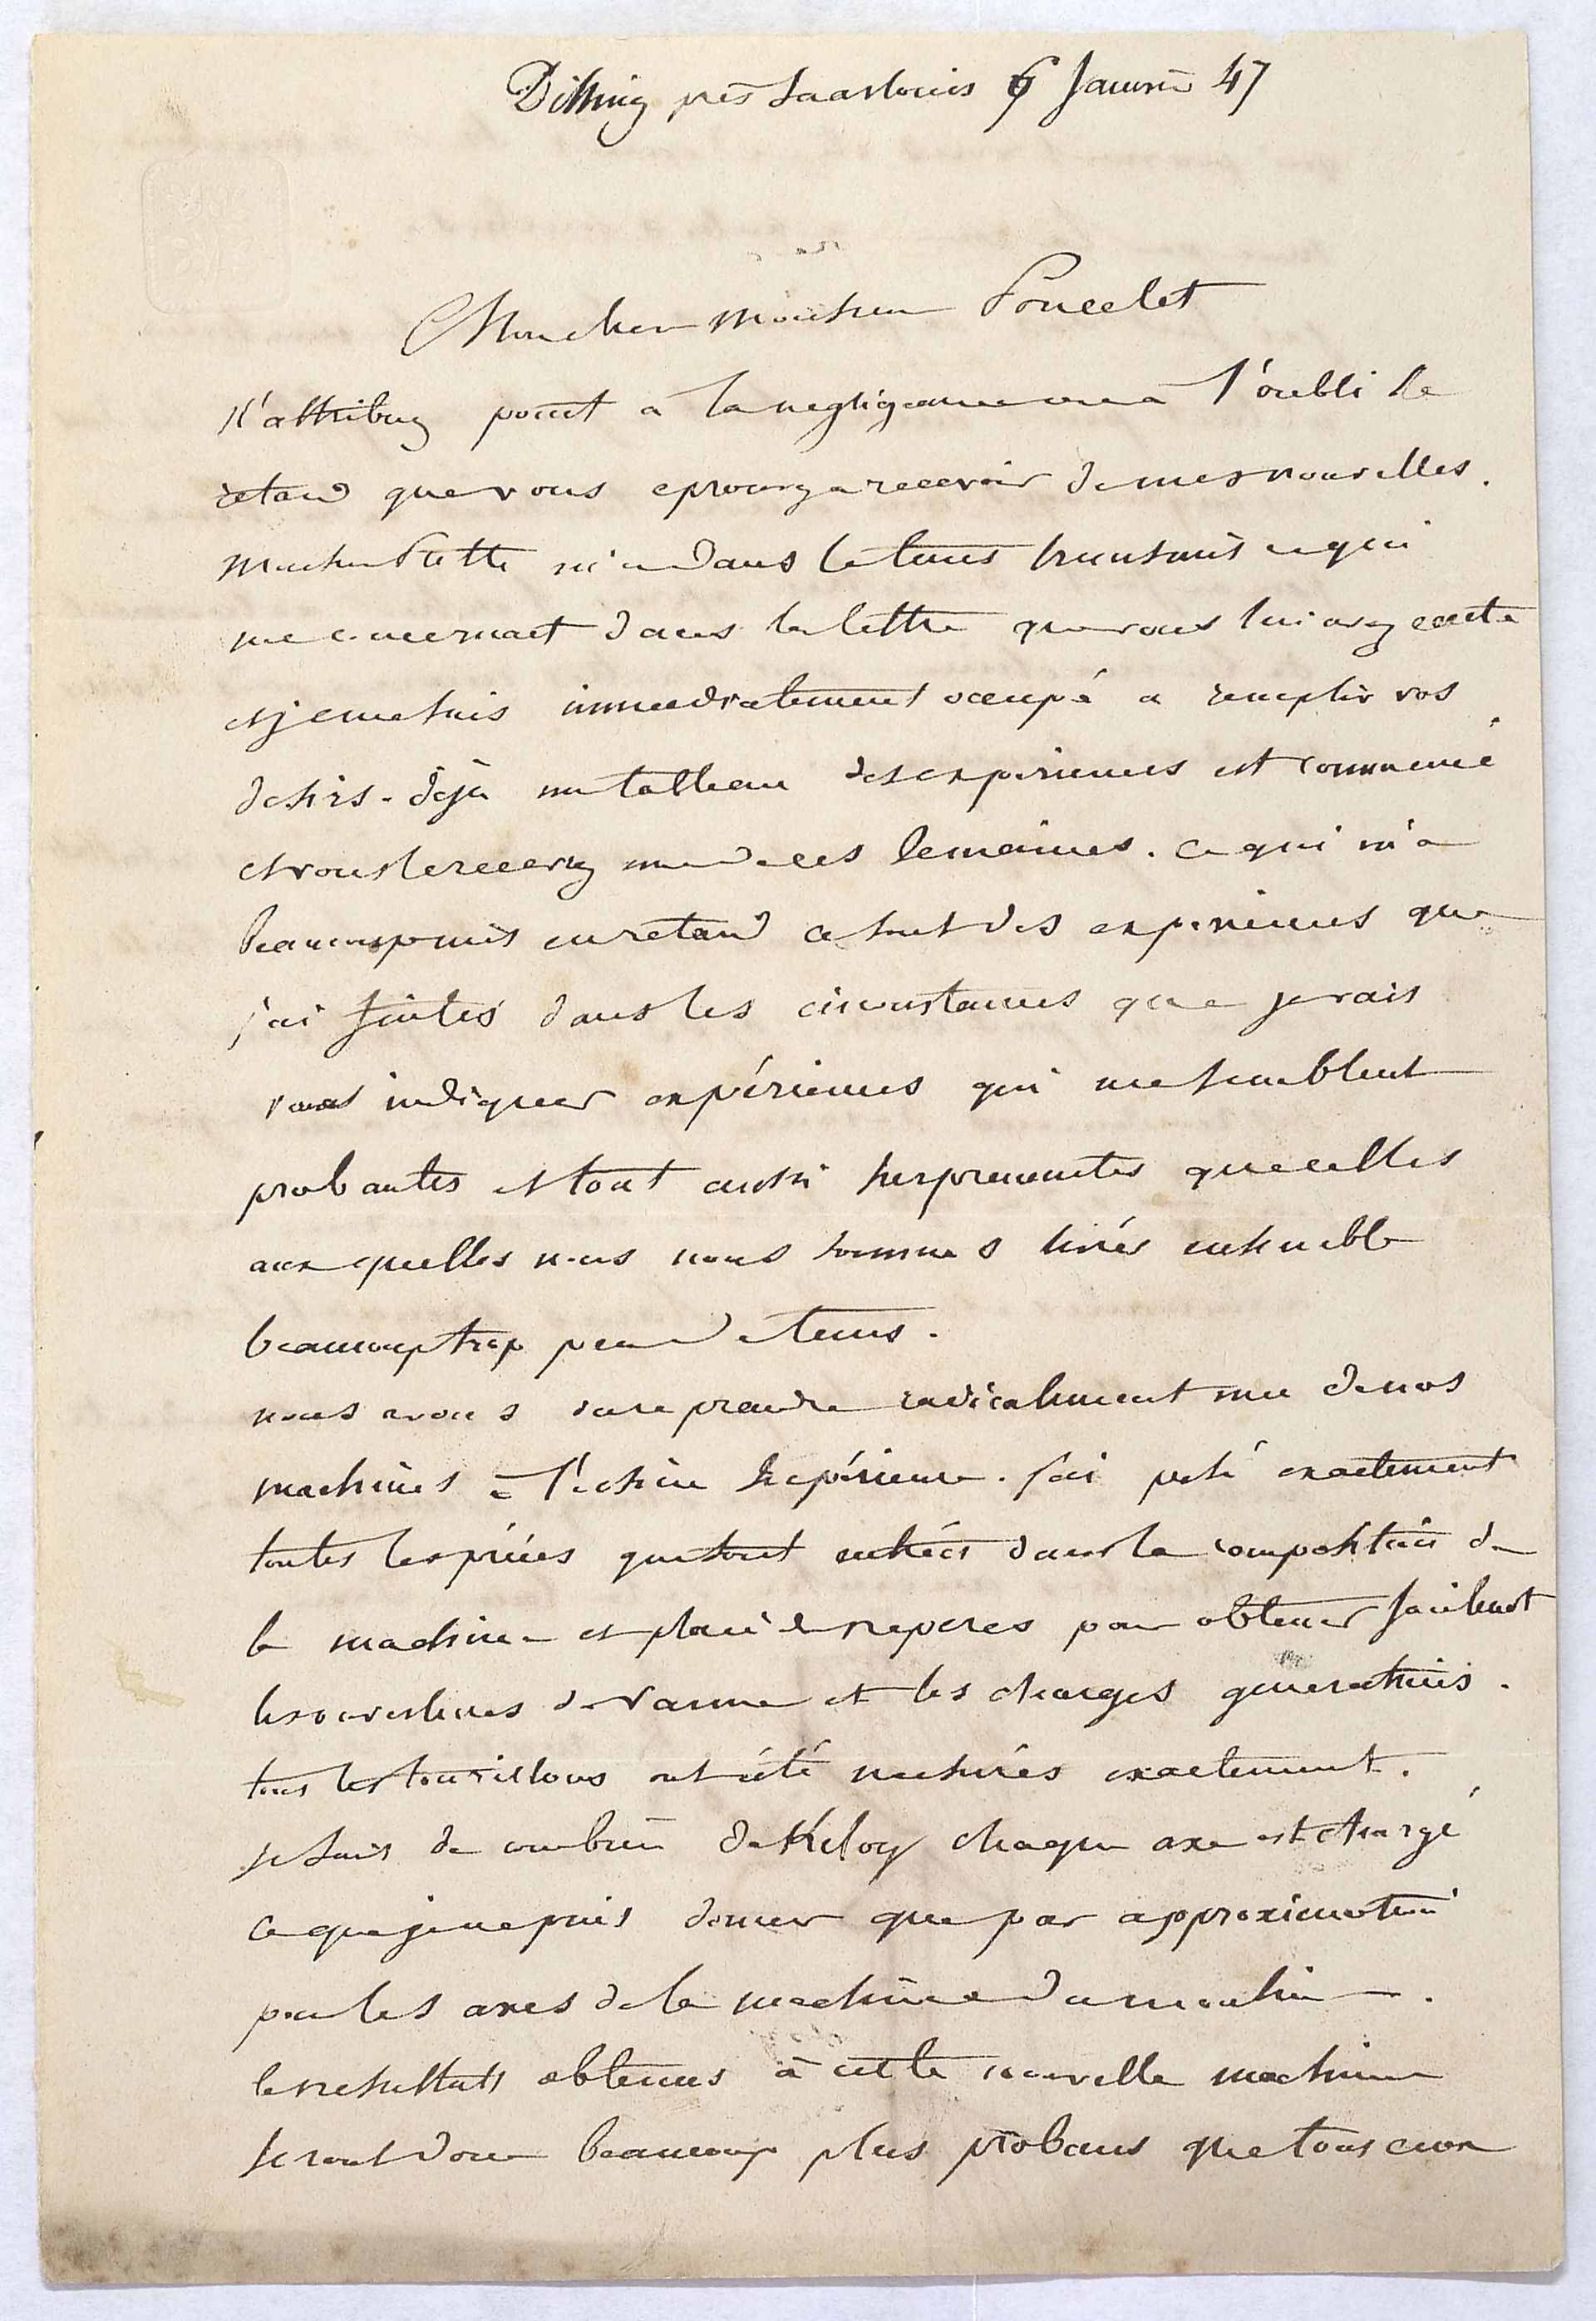 Dilling près Saarlouis 6 Janvier 47
Mon cher Monsieur Poncelet
N'attribuez point a la negligeance ou a l'oubli le
retard que vous eprouvez a recevoir de mes nouvelles.
Monsieur m'a dans le tems transmis ce qui
me concernait dans la lettre que vous lui avez ecrite
et je me suis immediatement occupé a remplir vos
desirs. déjà un tableau des experiences est commencé
et vous le recevrez une de ces semaines. ce qui m'a
beaucoup mis en retard ce sont des experiences que
j'ai faites dans les circonstances que je vais
vous indiquer expériences qui me semblent
probantes et tout aussi surprenantes que celles
aux quelles nous nous sommes livrés ensemble
beaucoup trop peu de tems.
nous avons du reprendre radicalement une de nos
machines à l'usine supérieure. j'ai pesé exactement
toutes les pièces qui sont entrées dans la composition de
la machine et placé des reperes pour obtenir facilement
les ouvertures de vanne et les charges generatrices.
tous les tourillons ont été mesurés exactement.
je sais de combien de Kilog chaque axe est chargé
ce que je ne puis donner que par approximation
pour les axes de la machine du moulin.
les resultats obtenus à cette nouvelle machine
seront donc beaucoup plus probans que tous ceux